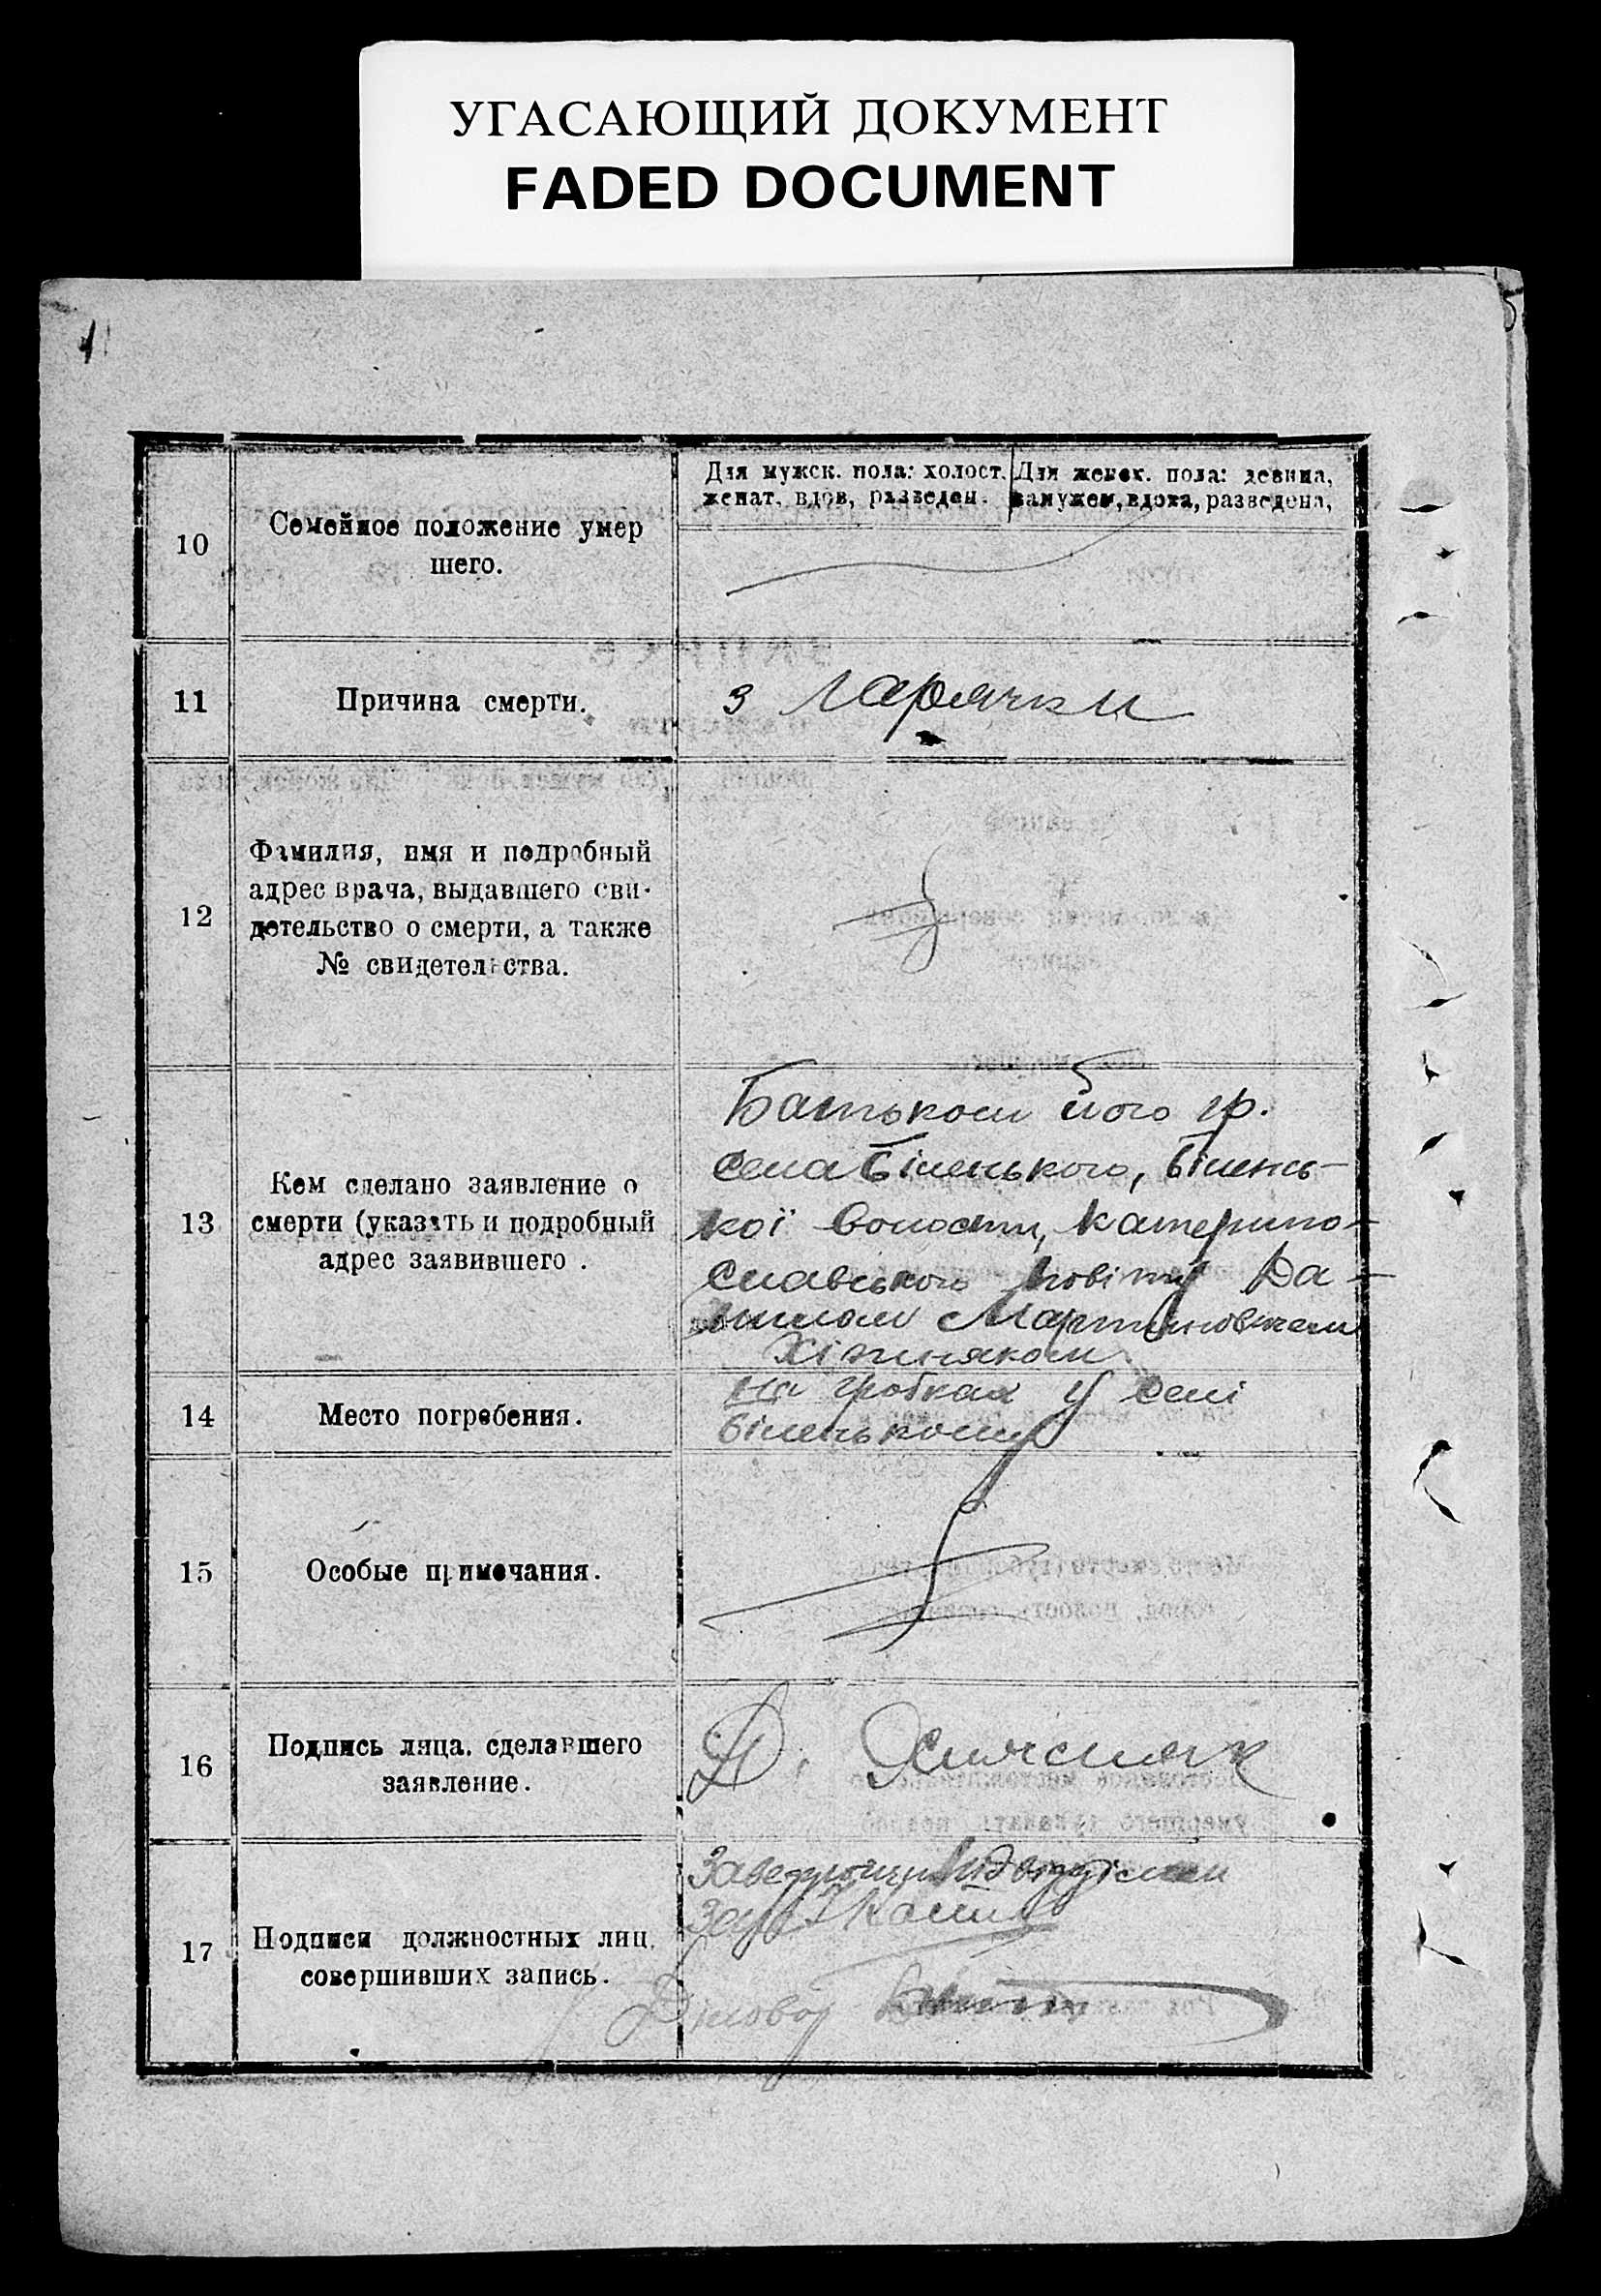 УГАСАЮЩИЙ ДОКУМЕНТ
FADED DOCUMENT
10
Семейное положение умер
шего.
Для мужск. пола: холост.
женат, вдов, разведен.
Для женск. пола: девица,
замужем, вдова, разведена,
11
Причина смерти.
з гарячки
12
Фамилия, имя и подробный
адрес врача, выдавшего сви-
детельство о смерти, а также
№ свидетельства.
13
Кем сделано заявление о
смерти (указать и подробный
адрес заявившего .
Батьком його гр.
села Біленького, Білень-
кої волости, Катерино-
славського повіту Да-
нилом Мартиновичем
14
Место погребения.
на гробках у селі
Біленькому
15
Особые примечания.
16
Подпись лица, сделавшего
заявление.
Д.
17
Подписи должностных лиц,
совершивших запись.
Діловод